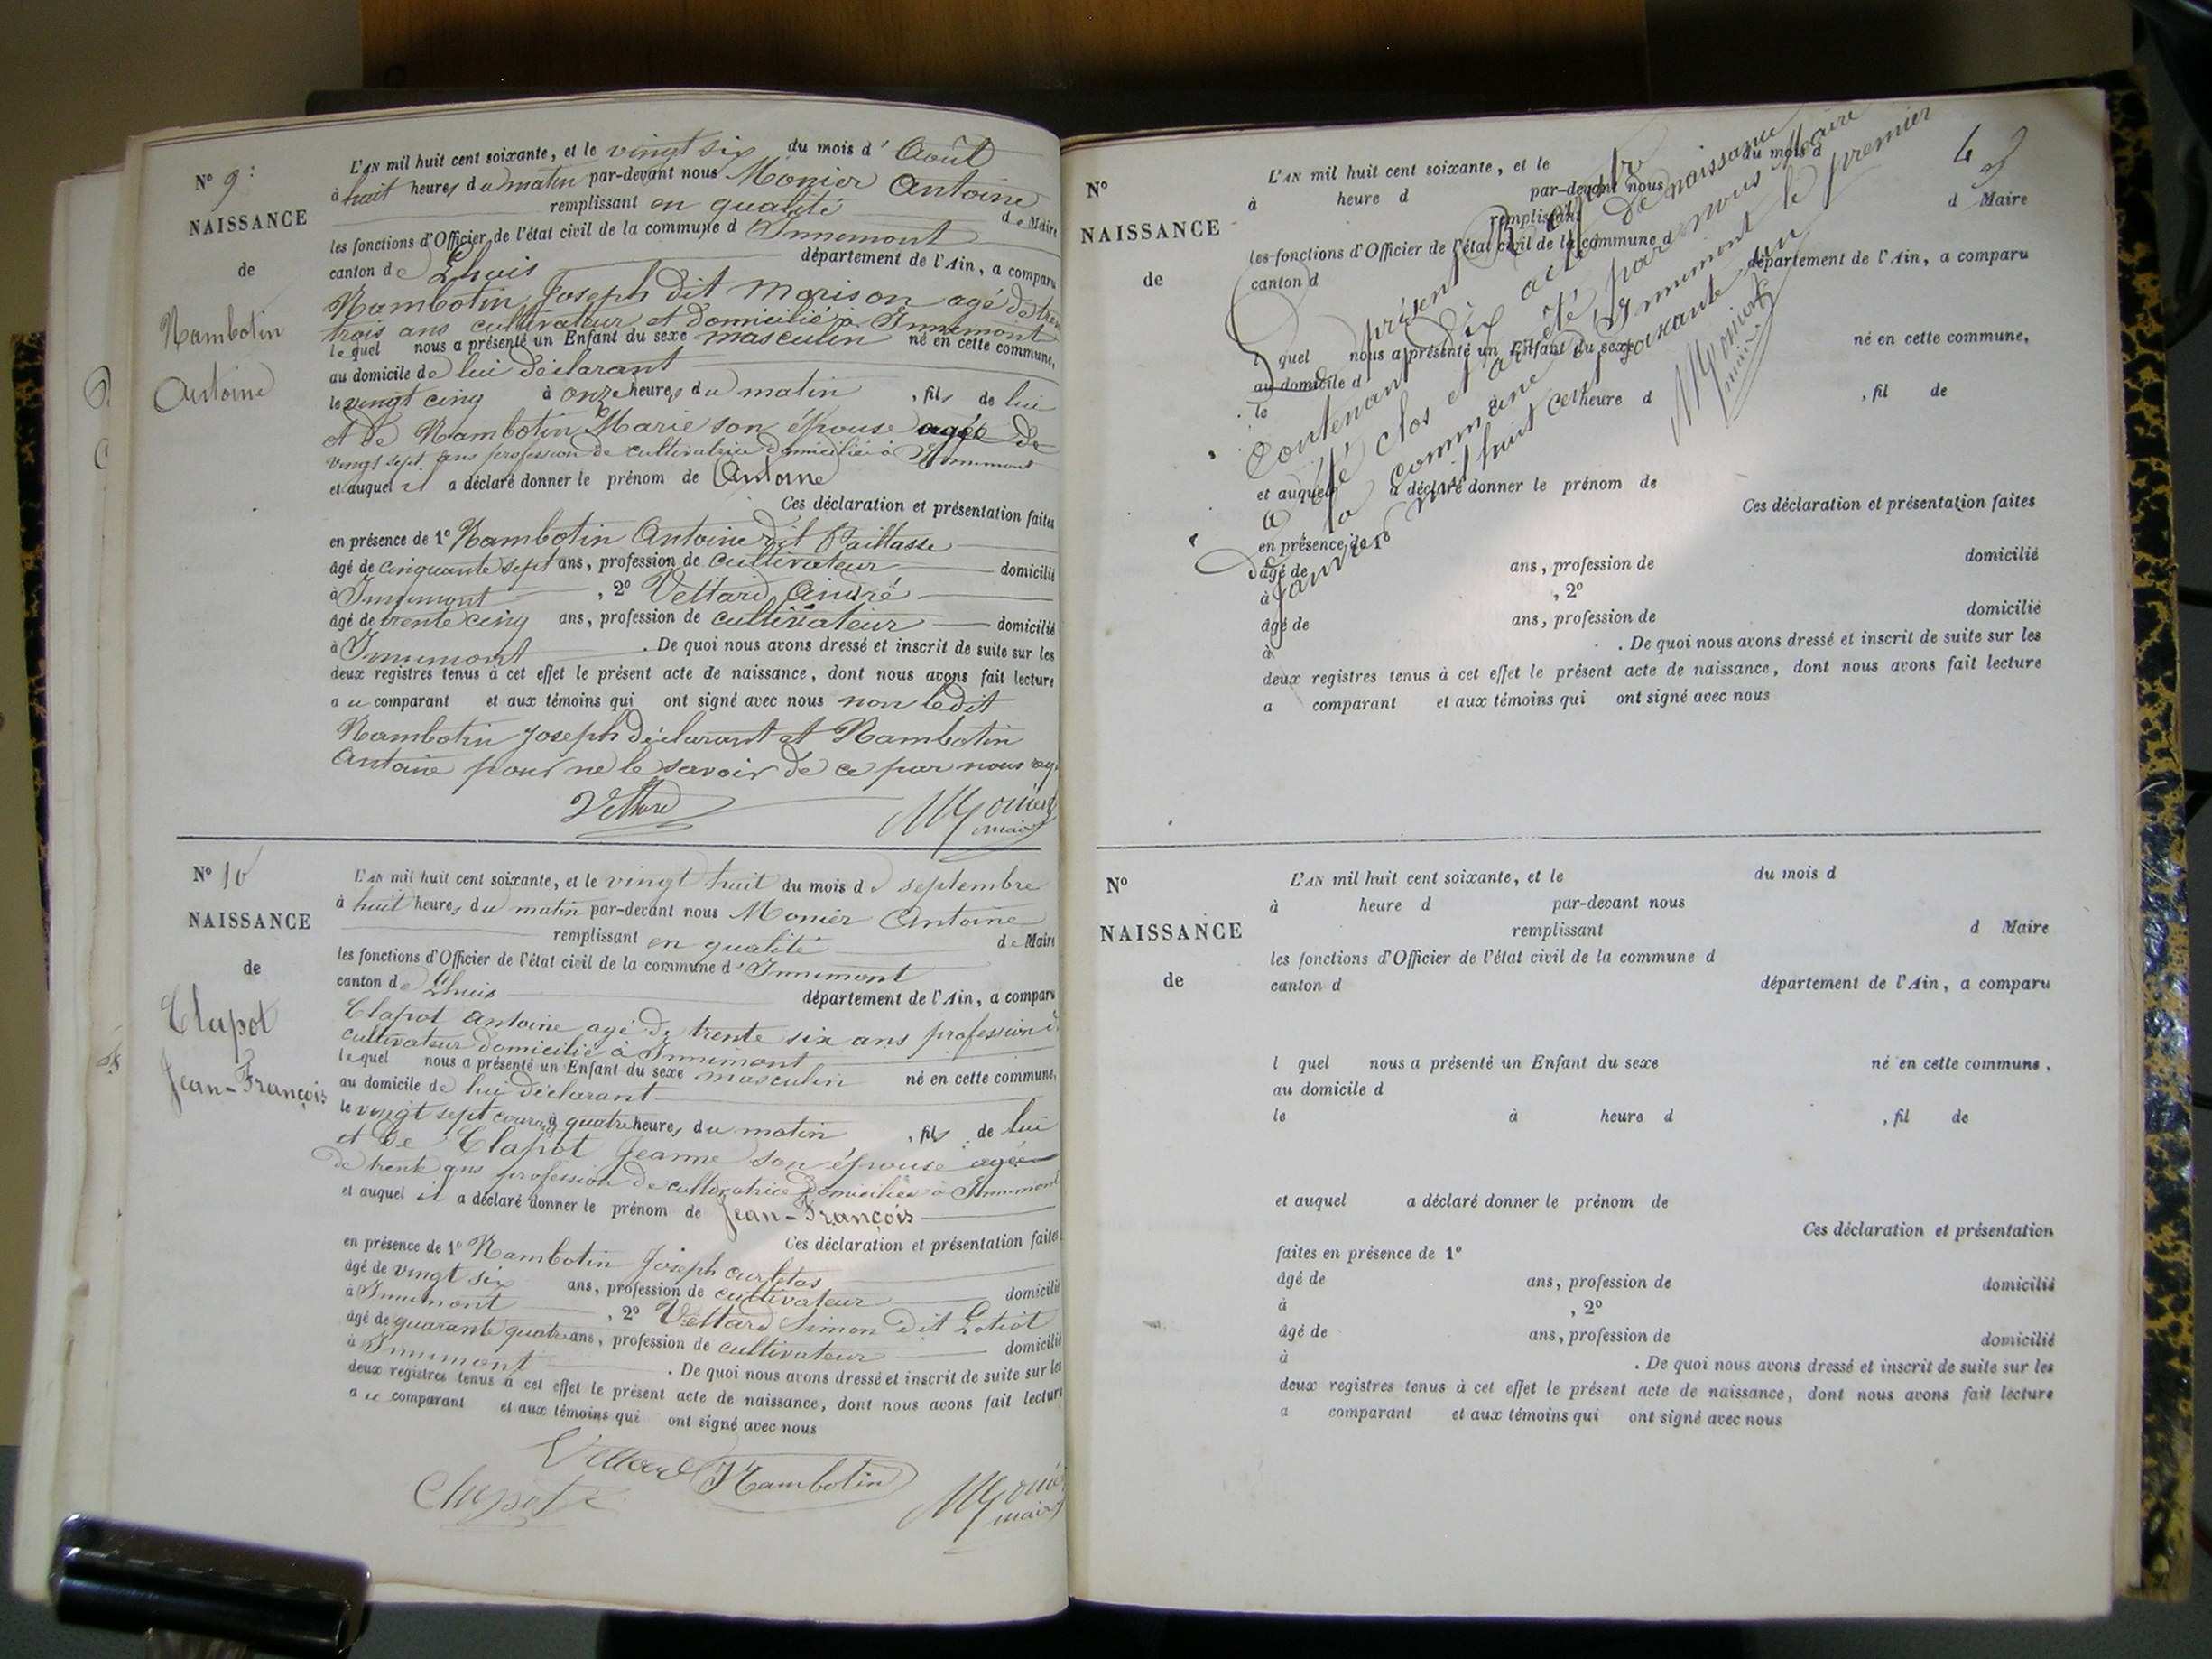 N° 9
NAISSANCE
de
Nambotin
Antoine
L'AN mil huit cent soixante, et le vingt six du mois d' Août
à huit heures du matin par-devant nous Monier Antoine
remplissant en qualité de Maire
les fonctions d'Officier de l'état civil de la commune d Innimont
canton de Lhuis département de l'Ain, a comparu
Nambotin Joseph dit Morison agé de
trois ans cultivateur et domicilié à Innimont
le quel nous a présenté un Enfant du sexe masculin né en cette commune,
au domicile de lui déclarant
le vingt cinq à onze heures du matin, fils de lui
et de Nambotin Marie son épouse agée de
vingt sept ans profession de cultivatrice domiciliée à Innimont
et auquel il a déclaré donner le prénom de Antoine
Ces déclaration et présentation faites
en présence de 1° Nambotin Antoine dit Paillasse
âgé de cinquante sept ans, profession de cultivateur domicilié
à Innimont, 2° Vettard André
âgé de trente cinq ans, profession de cultivateur domicilié
à Innimont. De quoi nous avons dressé et inscrit de suite sur les
deux registres tenus à cet effet le présent acte de naissance, dont nous avons fait lecture
au comparant et aux témoins qui ont signé avec nous non ledit
Nambotin Joseph déclarant et Nambotin
Antoine pour ne le savoir de ce par nous
Vettard Monier
maire
N° 10
NAISSANCE
de
Clapot
Jean-François
L'AN mil huit cent soixante, et le vingt huit du mois de septembre
à huit heures du matin par-devant nous Monier Antoine
remplissant en qualité de Maire
les fonctions d'Officier de l'état civil de la commune d'Innimont
canton de Lhuis département de l'Ain, a comparu
Clapot Antoine agé de trente six ans profession
cultivateur domicilié à Innimont
le quel nous a présenté un Enfant du sexe masculin né en cette commune,
au domicile de lui déclarant
le vingt sept courant à quatre heures du matin, fils de lui
et de Clapot Jeanne son épouse agée
de trente ans profession de cultivatrice domiciliée à Innimont
et auquel il a déclaré donner le prénom de Jean-François
Ces déclaration et présentation faites
en présence de 1° Nambotin Joseph
âgé de vingt six ans, profession de cultivateur domicilié
à Innimont, 2° Vettard Simon dit Lotiot
âgé de quarante quatre ans, profession de cultivateur domicilié
à Innimont. De quoi nous avons dressé et inscrit de suite sur les
deux registres tenus à cet effet le présent acte de naissance, dont nous avons fait lecture
au comparant et aux témoins qui ont signé avec nous
Vettard Nambotin
Clapot Monier
maire
N°
NAISSANCE
de
L'AN mil huit cent soixante, et le du mois d
à heure d par-devant nous
remplissant d Maire
les fonctions d'Officier de l'état civil de la commune d
canton d département de l'Ain, a comparu
quel nous a présenté un Enfant du sexe né en cette commune,
au domicile d
le heure d, fil de
et auquel a déclaré donner le prénom de
Ces déclaration et présentation faites
en présence de 1°
âgé de ans, profession de domicilié
à, 2°
âgé de ans, profession de domicilié
à. De quoi nous avons dressé et inscrit de suite sur les
deux registres tenus à cet effet le présent acte de naissance, dont nous avons fait lecture
a comparant et aux témoins qui ont signé avec nous
présent
Contenant dix actes de naissance
a été clos et arrêté par nous Maire
de la commune d'Innimont le premier
janvier mil huit cent soixante un
Monier
maire
N°
NAISSANCE
de
L'AN mil huit cent soixante, et le du mois d
à heure d par-devant nous
remplissant d Maire
les fonctions d'Officier de l'état civil de la commune d
canton d département de l'Ain, a comparu
l quel nous a présenté un Enfant du sexe né en cette commune,
au domicile d
le à heure d, fil de
et auquel a déclaré donner le prénom de
Ces déclaration et présentation
faites en présence de 1°
âgé de ans, profession de domicilié
à, 2°
âgé de ans, profession de domicilié
à. De quoi nous avons dressé et inscrit de suite sur les
deux registres tenus à cet effet le présent acte de naissance, dont nous avons fait lecture
a comparant et aux témoins qui ont signé avec nous